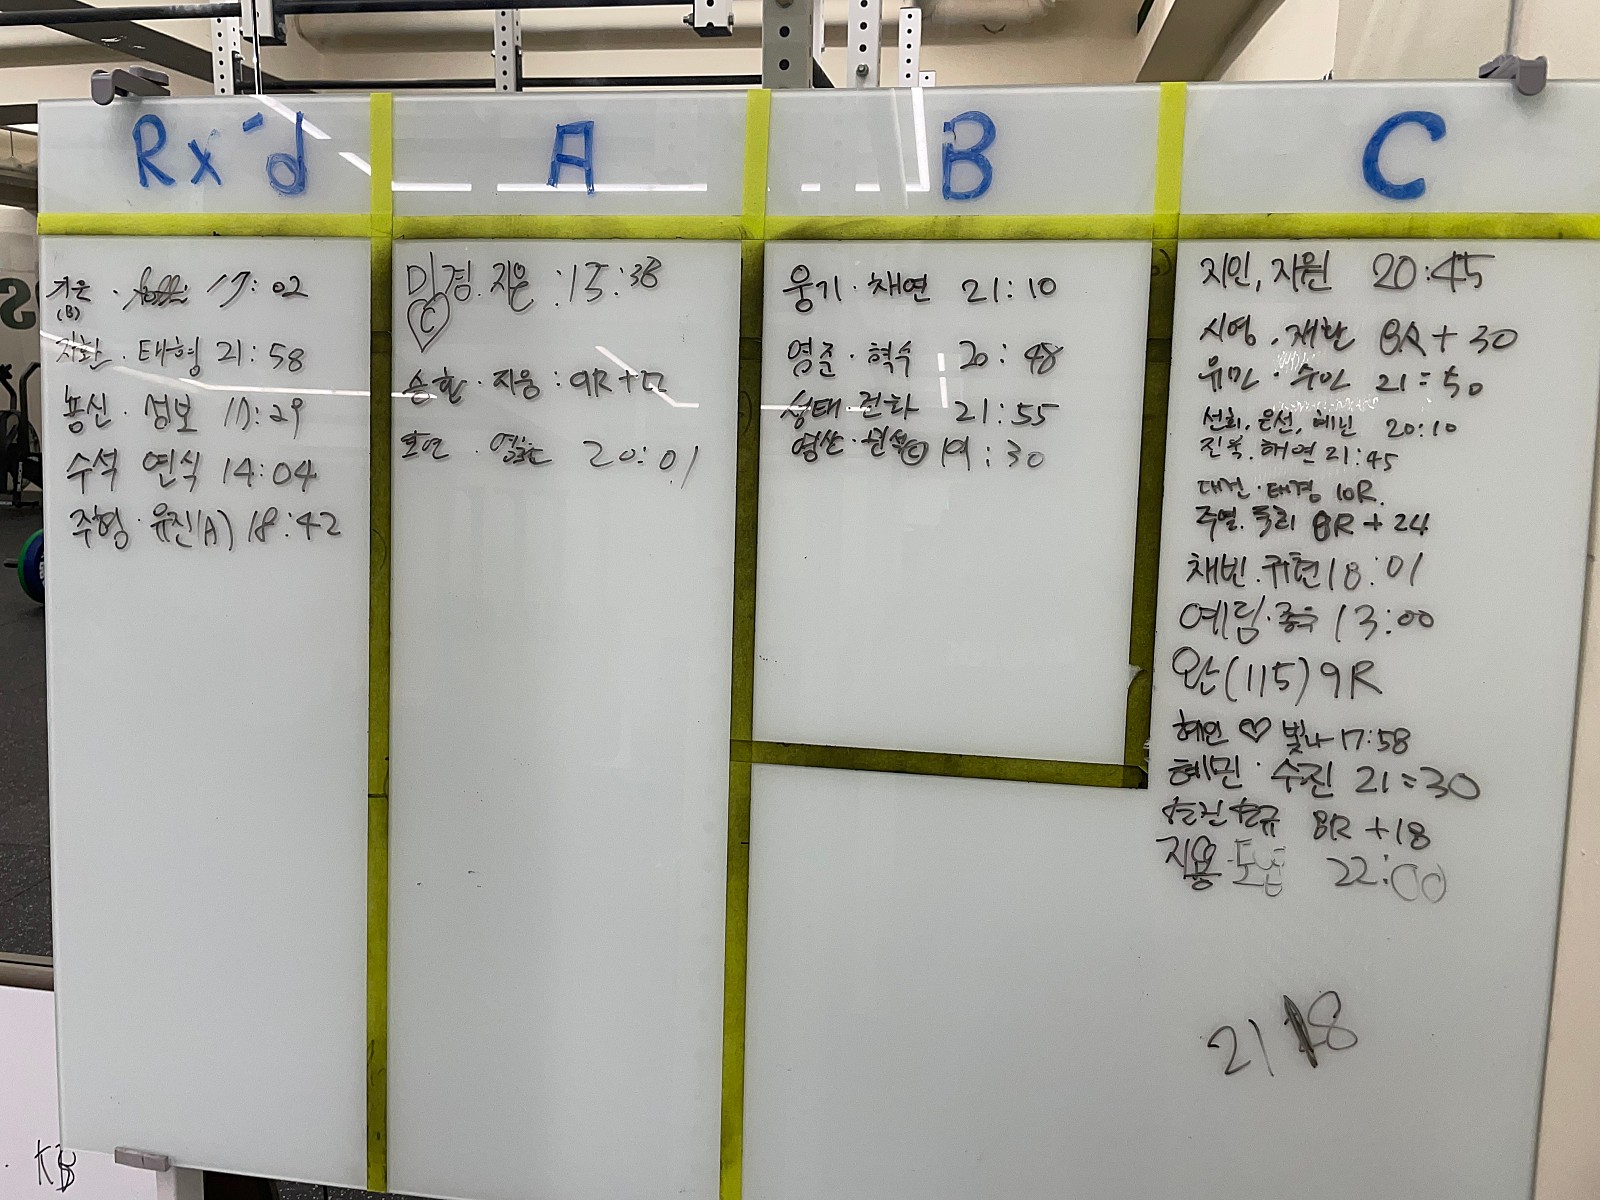 Rx'd
(B) 17:02
지환 · 태형 21:58
용신 · 성보 17:29
수석 연식 14:04
주형 · 유진(A) 18:42
A
미경 . 지은 : 15:38
C
승환 · 지웅 : 9R+
20:01
B
웅기 · 채연 21:10
영준 · 혁수 20:48
성태 · 진화 21:55
영산 · 원석 C 19:30
C
지인, 지원 20:45
시영 . 재환 8R + 30
유민 · 수민 21:50
선희, 은선, 혜빈 20:10
진욱 . 해연 21:45
대건 · 태경 10R.
주열 . 두리 8R + 24
채빈 . 귀현 18:01
예림 · 종우 13:00
완 (115) 9R
혜인 ♡ 빛나 17:58
혜민 · 수진 21:30
8R +18
지용 · 22:00
21 18
KB